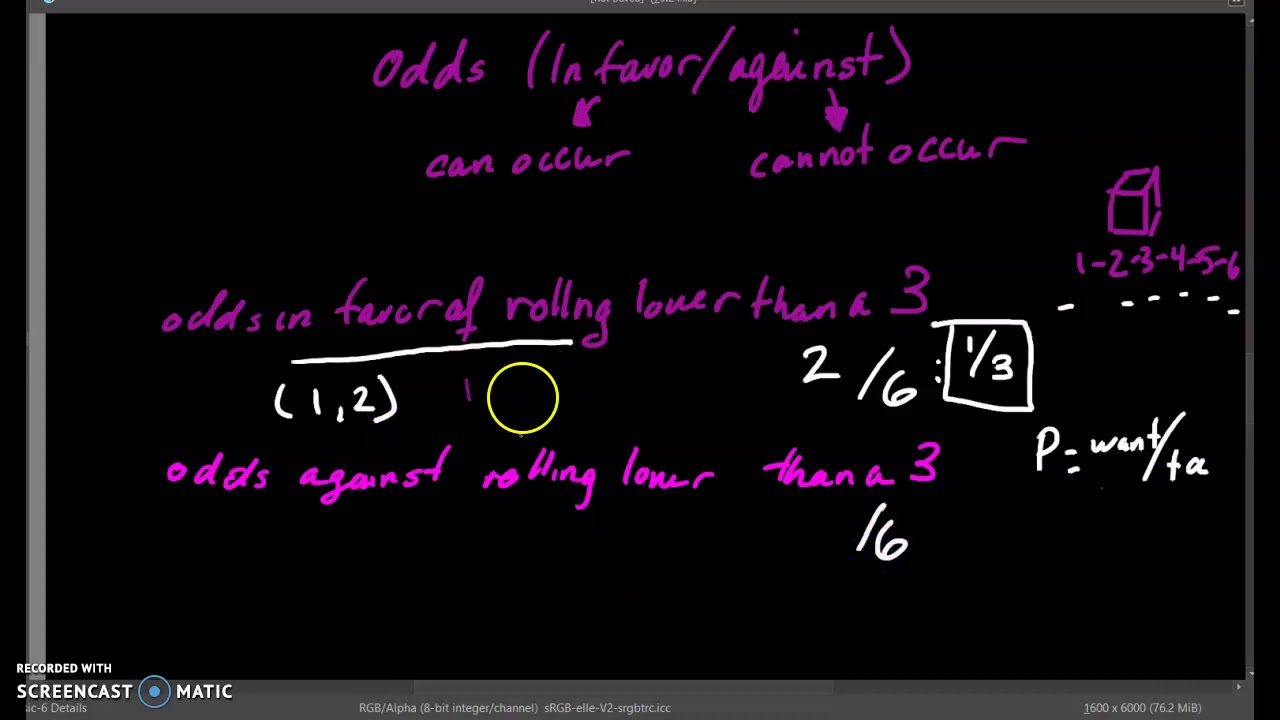 Odds (In favor/against)
can occur cannot occur
1-2-3-4-5-6
odds in favor of rolling lower than a 3
(1,2) 1 2/6 : 1/3
P = want/ta
odds against rolling lower than a 3
/6
RECORDED WITH
SCREENCAST MATIC
sic-6 Details RGB/Alpha (8-bit integer/channel) sRGB-elle-V2-srgbtrc.icc 1600 x 6000 (76.2 MiB)